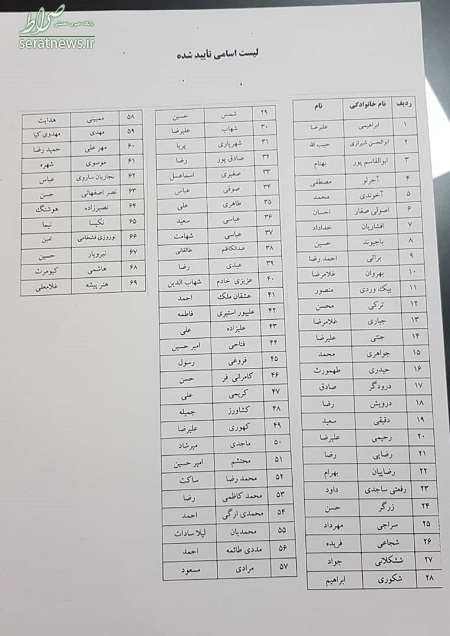 پایگاه خبری تحلیلی
صراط
seratnews.ir
لیست اسامی تایید شده
ردیف نام خانوادگی نام
۱ ابراهیمی علیرضا
۲ ابوالحسن شیرازی حبیب الله
۳ ابوالقاسم پور بهنام
۴ آجرلو مصطفی
۵ آخوندی محمد
۶ اصولی صفار احسان
۷ افشاریان خداداد
۸ باجیوند حسین
۹ براتی احمد رضا
۱۰ بهروان غلامرضا
۱۱ بیک وردی منصور
۱۲ ترکی محسن
۱۳ جباری غلامرضا
۱۴ جنتی علیرضا
۱۵ جواهری محمد
۱۶ حیدری طهمورث
۱۷ درودگر صادق
۱۸ درویش رضا
۱۹ دقیقی سعید
۲۰ رحیمی علیرضا
۲۱ رضایی رضا
۲۲ رضاییان بهرام
۲۳ رفعتی ساجدی داود
۲۴ زرگر حسن
۲۵ سراجی مهرداد
۲۶ شجاعی فریده
۲۷ ششکلانی جواد
۲۸ شکوری ابراهیم
۲۹ شمس حسین
۳۰ شهاب علیرضا
۳۱ شهریاری پریا
۳۲ صادق پور رضا
۳۳ صفیری اسماعیل
۳۴ صوفی عباس
۳۵ طاهری علی
۳۶ عباسی سعید
۳۷ عباسی شهامت
۳۸ عبدالکاظم طالقانی
۳۹ عبدی رضا
۴۰ عزیزی خادم شهاب الدین
۴۱ عشقان ملک احمد
۴۲ علیپور استیری فاطمه
۴۳ علیزاده علی
۴۴ فتاحی امیر حسین
۴۵ فروغی رسول
۴۶ کامرانی فر حسن
۴۷ کریمی علی
۴۸ کشاورز جمیله
۴۹ کهوری علیرضا
۵۰ ماجدی میرشاد
۵۱ محتشم امیر حسین
۵۲ محمد رضا ساکت
۵۳ محمد کاظمی رضا
۵۴ محمدی ارگی احمد
۵۵ محمدیان لیلا سادات
۵۶ مددی طائمه احمد
۵۷ مرادی مسعود
۵۸ ممبینی هدایت
۵۹ مهدی مهدوی کیا
۶۰ مهر علی حمید رضا
۶۱ موسوی شهره
۶۲ نجاریان ساروی عباس
۶۳ نصر اصفهانی حسن
۶۴ نصیرزاده هوشنگ
۶۵ نکیسا نیما
۶۶ نوروزی فشخامی امین
۶۷ نیرویار حسین
۶۸ هاشمی کیومرث
۶۹ هنر پیشه غلامعلی